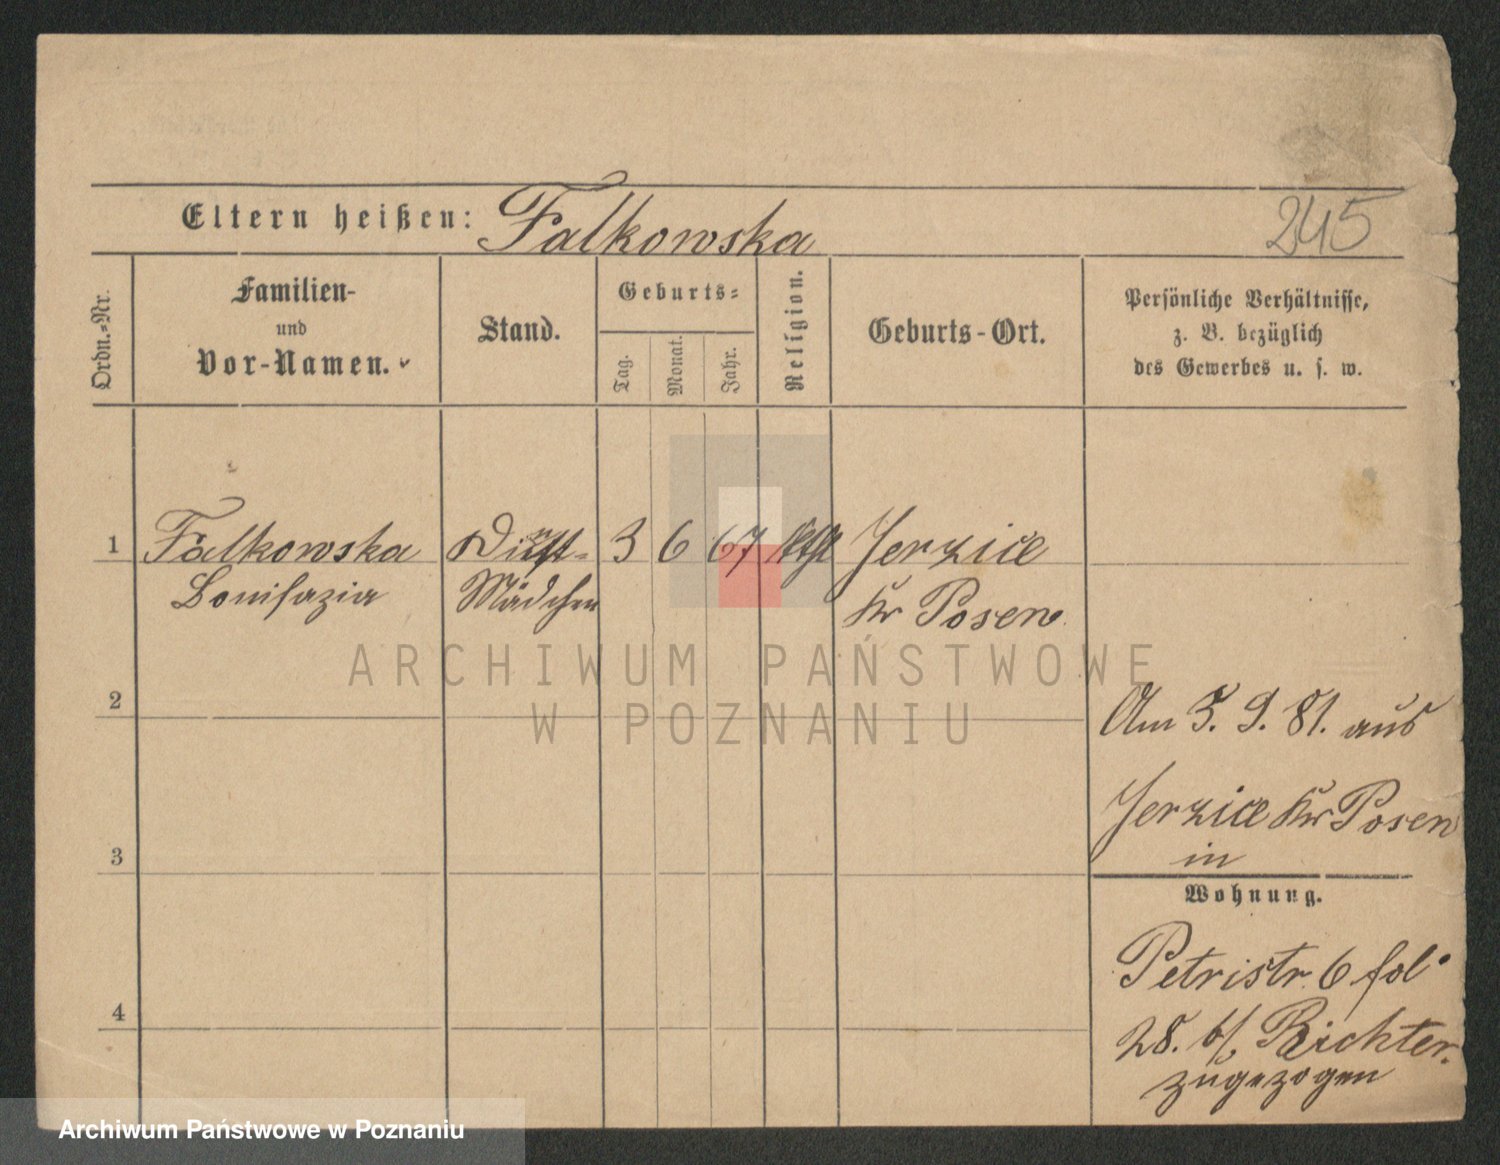 Eltern heißen: Falkowska
245
Ordn.-Nr.
Familien-
und
Vor-Namen.
Stand.
Geburts-
Tag.
Monat.
Jahr.
Religion.
Geburts-Ort.
Persönliche Verhältnisse,
z. B. bezüglich
des Gewerbes u. s. w.
1 Falkowska 3 6 67 Jerzice
Bonifazia Mädchen Kr Posen
ARCHIWUM PAŃSTWOWE
W POZNANIU
2
Am 5. 9. 81. aus
Jerzice Kr Posen
in
3
Wohnung.
Petristr. 6 fol
28. b/ Richter.
zugezogen
4
Archiwum Państwowe w Poznaniu